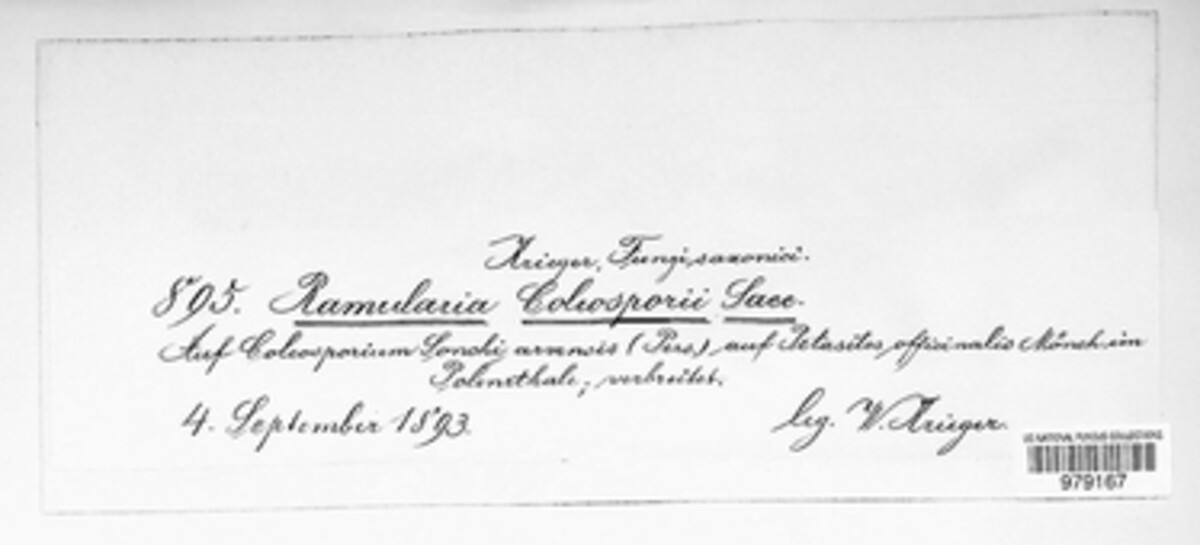 Krieger, Fungi saxonici.
895. Ramularia Coleosporii Sacc.
Auf Coleosporium Sonchi arvensis (Pers.) auf Petasites officinalis Mönch im
Polenzthale; verbreitet.
4. September 1893.
leg. W. Krieger.
US NATIONAL FUNGUS COLLECTIONS
979167